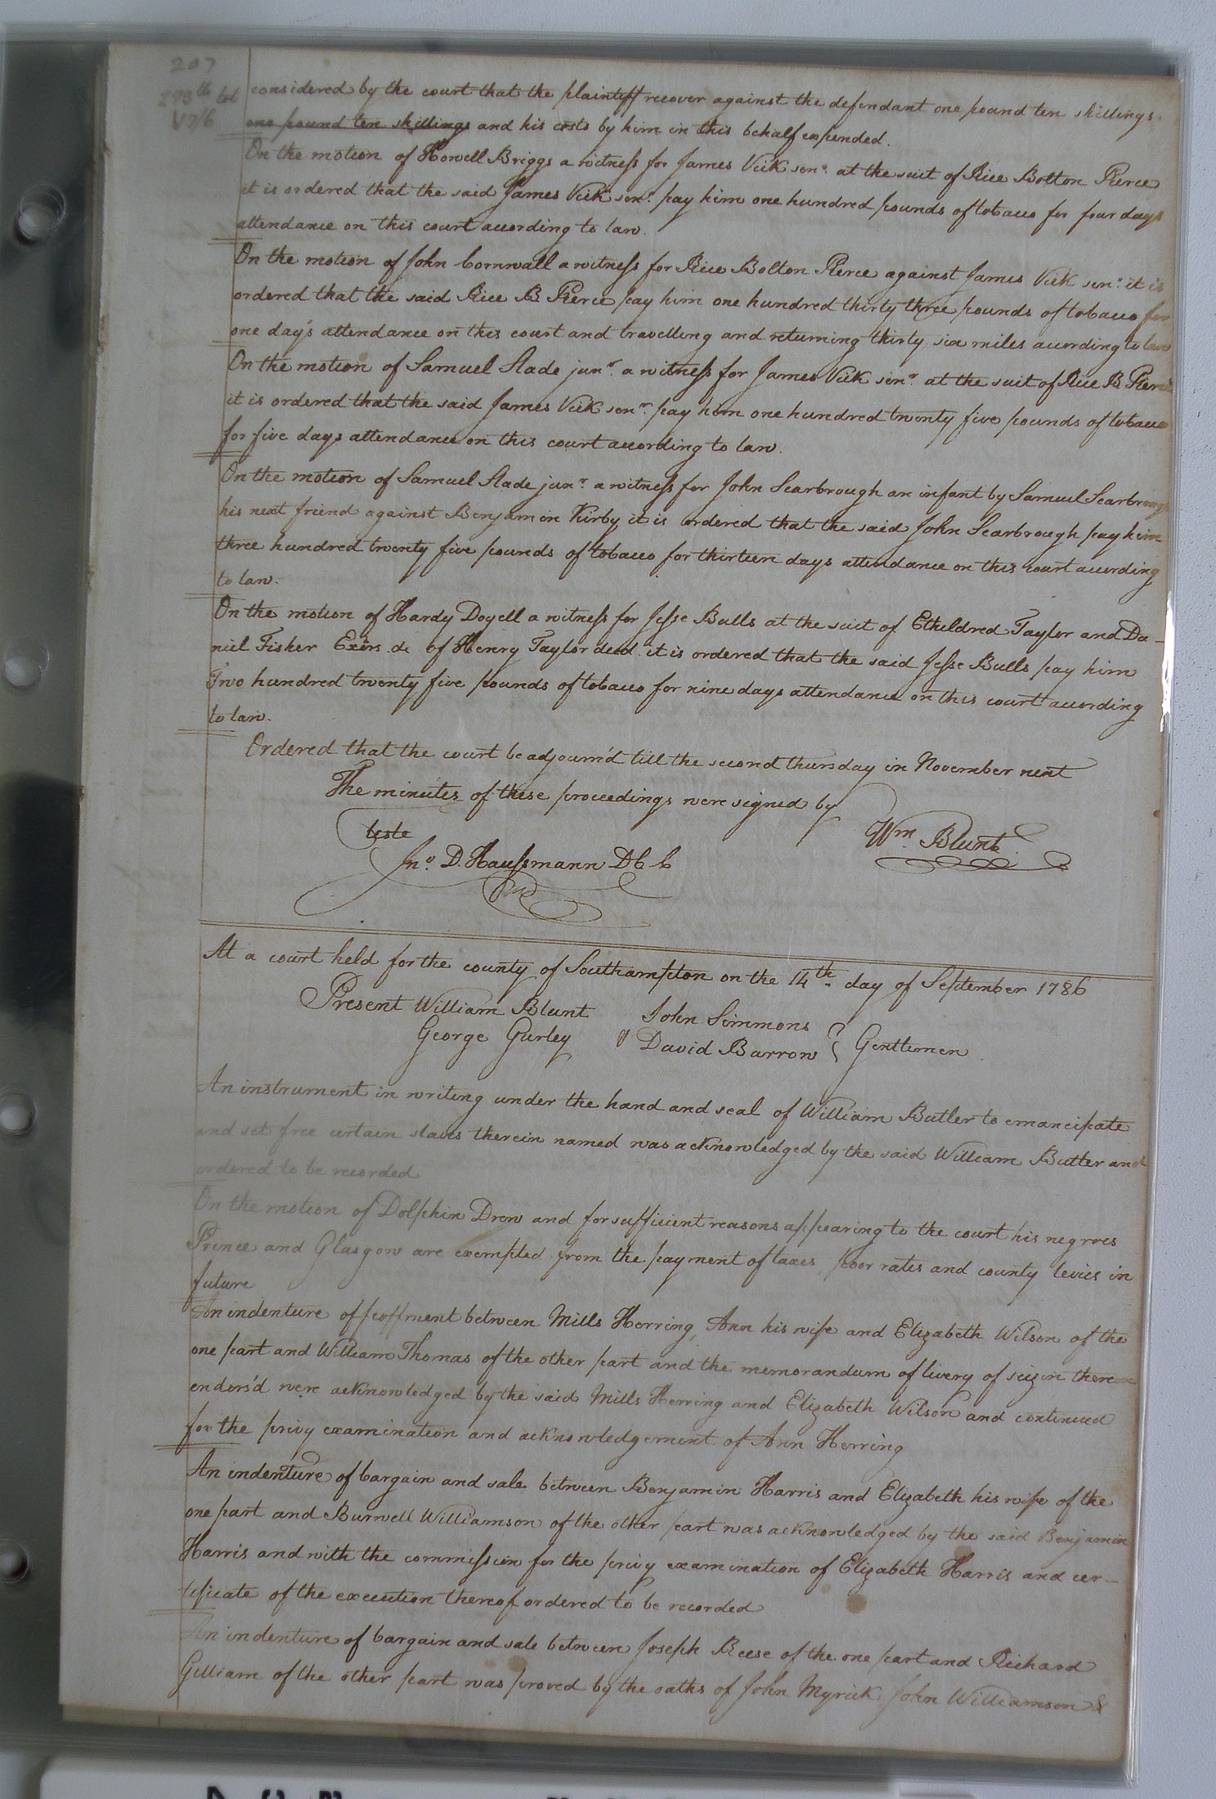 207
293 lb tob
considered by the court that the plaintiff recover against the defendant one pound ten skillings
one pound ten skillings and his costs by him in this behalf expended.
On the motion of Howell Briggs a witness for James Vick senr. at the suit of Rice Bolton Pierce
it is ordered that the said James Vick senr. pay him one hundred pounds of tobacco for four days
attendance on this court according to law.
On the motion of John Cornwall a witness for Rice Bolton Pierce against James Vick senr. it is
ordered that the said Rice B Pierce pay him one hundred thirty three pounds of tobacco for
one day's attendance on this court and travelling and returning thirty six miles according to law
On the motion of Samuel Slade junr. a witness for James Vick senr. at the suit of Rice B Pierce
it is ordered that the said James Vick senr. pay him one hundred twenty five pounds of tobacco
for five days attendance on this court according to law.
On the motion of Samuel Slade junr. a witness for John Scarbrough an infant by Samuel Scarbrough
his next friend against Benjamin Kirby it is ordered that the said John Scarbrough pay him
three hundred twenty five pounds of tobacco for thirteen days attendance on this court according
to law.
On the motion of Hardy Doyell a witness for Jesse Bulls at the suit of Etheldred Taylor and Da-
niel Fisher Exors. &c of Henry Taylor decd. it is ordered that the said Jesse Bulls pay him
Two hundred twenty five pounds of tobacco for nine days attendance on this court according
to law.
Ordered that the court be adjourn'd till the second thursday in November next
The minutes of these proceedings were signed by
teste
Wm. Blunt
Jno. D. Haussmann D C C
At a court held for the county of Southampton on the 14th. day of September 1786
Present William Blunt John Simmons
George Gurley & David Barrow } Gentlemen
An instrument in writing under the hand and seal of William Butler to emancipate
and set free certain slaves therein named was acknowledged by the said William Butler and
ordered to be recorded
On the motion of Dolphin Drew and for sufficient reasons appearing to the court his negroes
Prince and Glasgow are exempted from the payment of taxes poor rates and county levies in
future
An indenture of feoffment between Mills Herring, Ann his wife and Elizabeth Wilson of the
one part and William Thomas of the other part and the memorandum of livery of seizin thereon
endors'd were acknowledged by the said Mills Herring and Elizabeth Wilson and continued
for the privy examination and acknowledgement of Ann Herring
An indenture of bargain and sale between Benjamin Harris and Elizabeth his wife of the
one part and Burwell Williamson of the other part was acknowledged by the said Benjamin
Harris and with the commission for the privy examination of Elizabeth Harris and cer-
tificate of the execution thereof ordered to be recorded
An indenture of bargain and sale between Joseph Reese of the one part and Richard
Gilliam of the other part was proved by the oaths of John Myrick John Williamson &